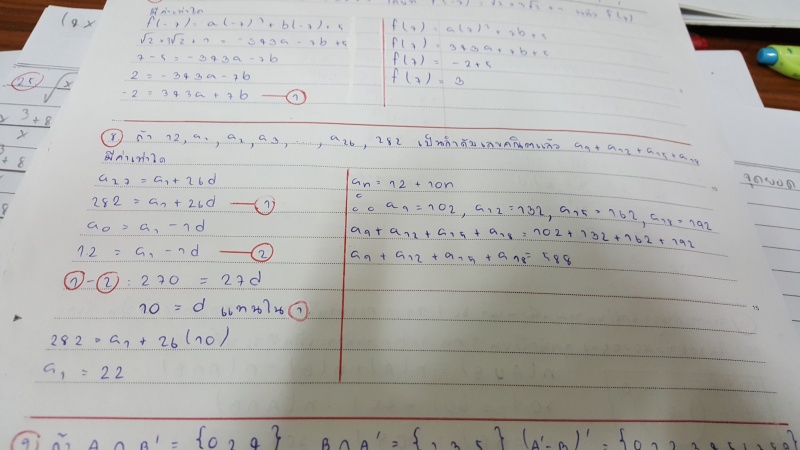 มีค่าเท่าใด
f(-7) = a(-7)³ + b(-7) + 5
7 - 5 = -343a - 7b
2 = -343a - 7b
-2 = 343a + 7b ①
f(7) = a(7)³ + 7b + 5
f(7) = 343a + 7b + 5
f(7) = -2 + 5
f(7) = 3
25
⑧ ถ้า 12, a₁, a₂, a₃, ..., a₂₆, 282 เป็นลำดับเลขคณิตแล้ว a₉ + a₁₂ + a₁₅ + a₁₈
มีค่าเท่าใด
a₂₇ = a₁ + 26d
282 = a₁ + 26d ①
a₀ = a₁ - 1d
12 = a₁ - 1d ②
① - ② : 270 = 27d
10 = d แทนใน ①
282 = a₁ + 26(10)
a₁ = 22
aₙ = 12 + 10n
∴ a₉ = 102, a₁₂ = 132, a₁₅ = 162, a₁₈ = 192
a₉ + a₁₂ + a₁₅ + a₁₈ = 102 + 132 + 162 + 192
a₉ + a₁₂ + a₁₅ + a₁₈ = 588
9) ถ้า A ∩ B' = {0,2,4} B ∩ A' = {1,3,5} (A'-B)' =